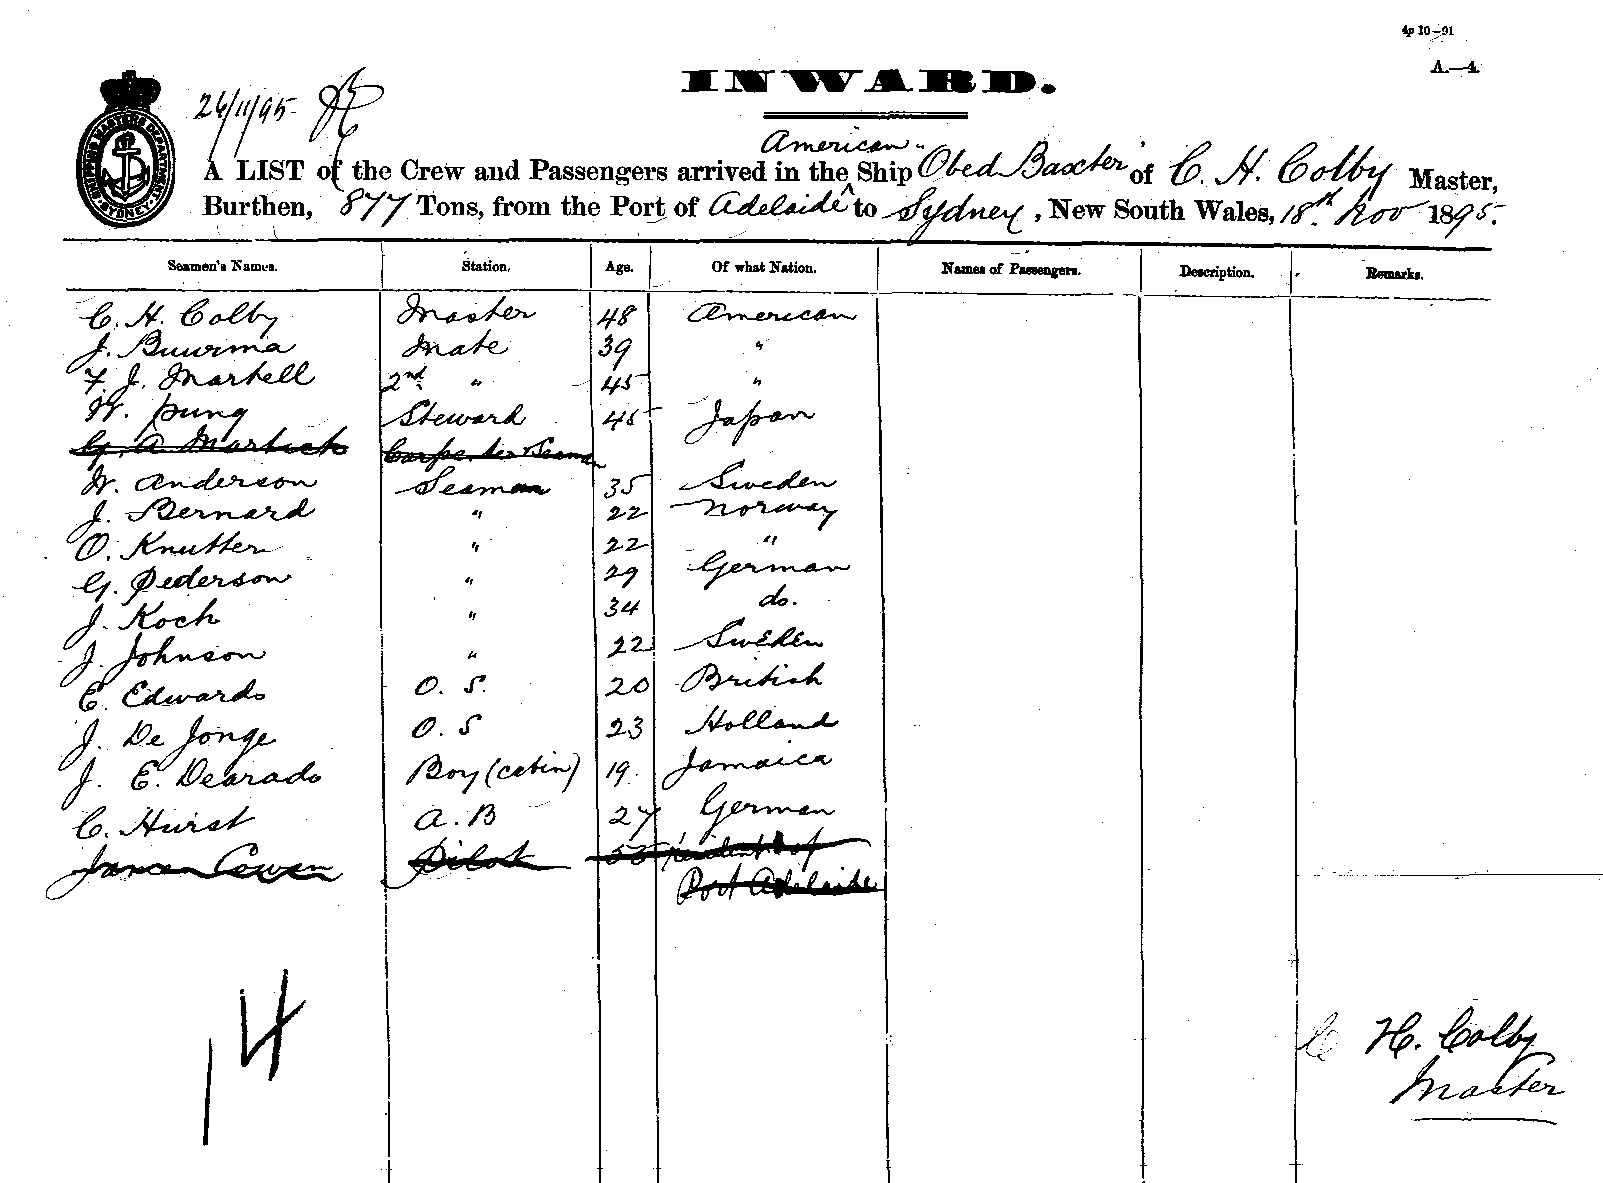 4p 10–91
A.—4
INWARD.
26/11/95
SHIPPING MASTERS DEPARTMENT SYDNEY
American
A LIST of the Crew and Passengers arrived in the Ship "Obed Baxter" of C. H. Colby Master,
Burthen, 877 Tons, from the Port of Adelaide to Sydney, New South Wales, 18th Nov 1895.
Seamen's Names. Station. Age. Of what Nation. Names of Passengers. Description. Remarks.
C. H. Colby Master 48 American
J. Buurma Mate 39 "
F. J. Martell 2nd " 45 "
W. pung Steward 45 Japan
G. A. Martich Carpenter Seaman
W. Anderson Seaman 35 Sweden
J. Bernard " 22 Norway
O. Knutten " 22 "
G. Pederson " 29 German
J. Koch " 34 do.
J. Johnson " 22 Sweden
E. Edwards O. S. 20 British
J. De Jonge O. S 23 Holland
J. E. Dearado Boy (cabin) 19. Jamaica
C. Hurst A. B 27 German
James Cowen Pilot 55 resident of
Port Adelaide
14
C H. Colby
Master